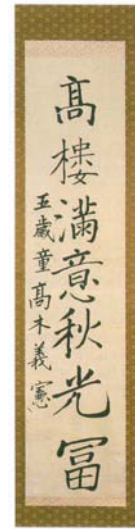 髙樓滿意秋光冨
五歳童髙木義憲